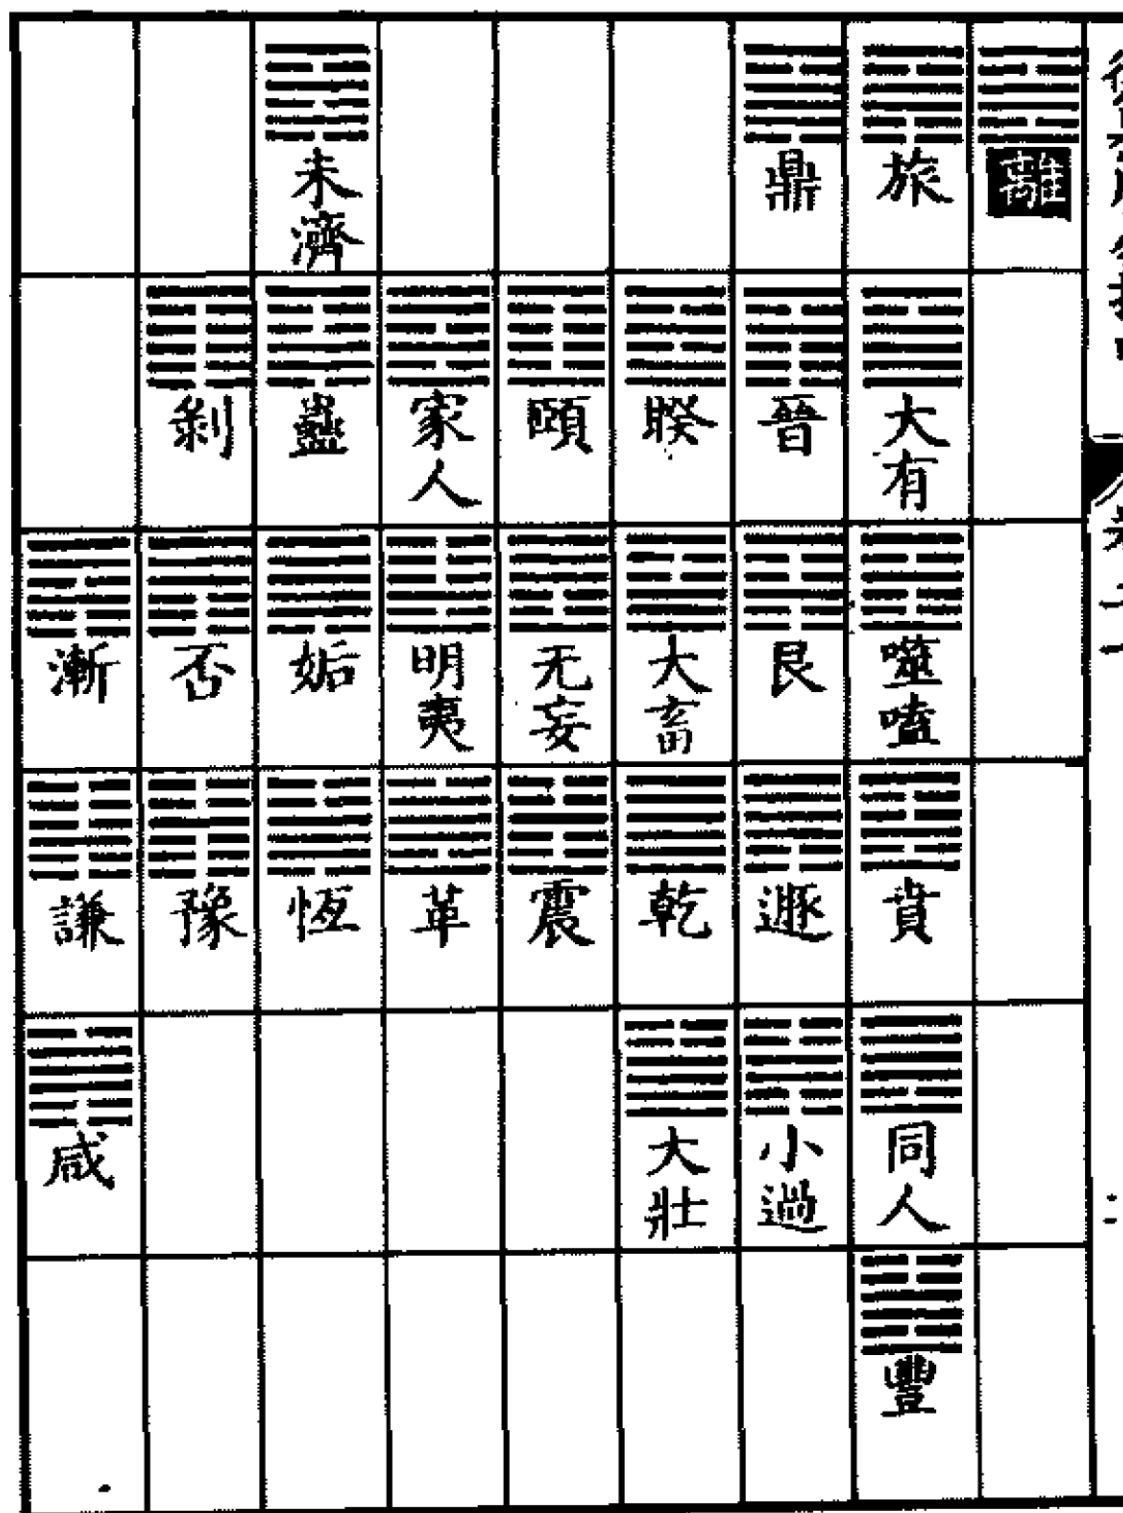 離
旅
大有
噬嗑
賁
同人
豐
鼎
晉
艮
遯
小過
睽
大畜
乾
大壯
頤
无妄
震
家人
明夷
革
未濟
蠱
姤
恆
剝
否
豫
漸
謙
咸